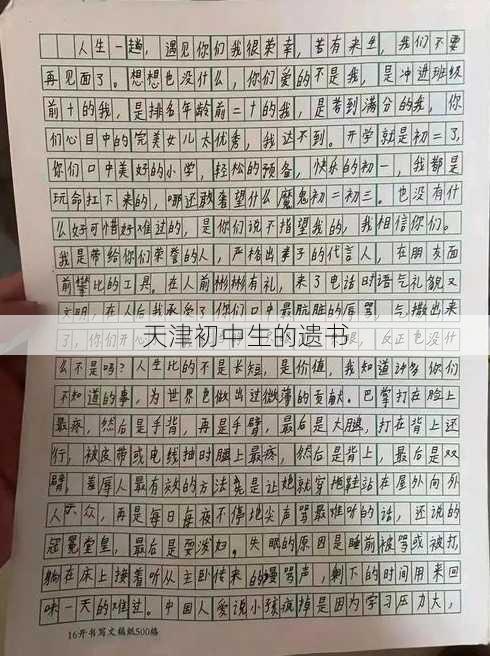 人生一趟，遇见你们我很荣幸，若有来生，我们不要
再见面了。想想也没什么，你们爱的不是我，是冲进班级
前十的我，是排名年龄前二十的我，是考到满分的我，你
们心目中的完美女儿太优秀，我达不到。开学就是初二了，
你们口中美好的小学，轻松的预备，快乐的初一，我都是
玩命扛下来的，哪还敢奢望什么魔鬼初二初三。也没有什
么好可惜好难过的，是你们说不指望我的，我相信你们。
我是带给你们荣誉的人，严格出孝子的代言人，在朋友面
前攀比的工具。在人前彬彬有礼，来了电话时语气礼貌又
文明，在人后我承受了你们口中最肮脏的辱骂，气撒出来
了，你们开心
天津初中生的遗书
反正也没什
么不是吗？人生比的不是长短，是价值，我知道许多你们
不知道的事，为世界也做出过微薄的贡献。巴掌打在脸上
最疼，然后是手背，再是手臂，最后是大腿，打在背上还
行，被皮带或电线抽时腿上最疼，然后是背上，最后是双
臂，羞辱人最有效的方法竟是让她就穿拖鞋站在屋外向外
人示众，再是每日每夜不停地尖声骂最难听的话，还说的
冠冕堂皇，最后是耍泼妇。失眠的原因是睡前被骂或被打，
躺在床上接着听从主卧传来的谩骂声，剩下的时间用来回
味一天的难过。中国人爱说小孩疯掉是因为学习压力大，
16开书写文稿纸500格